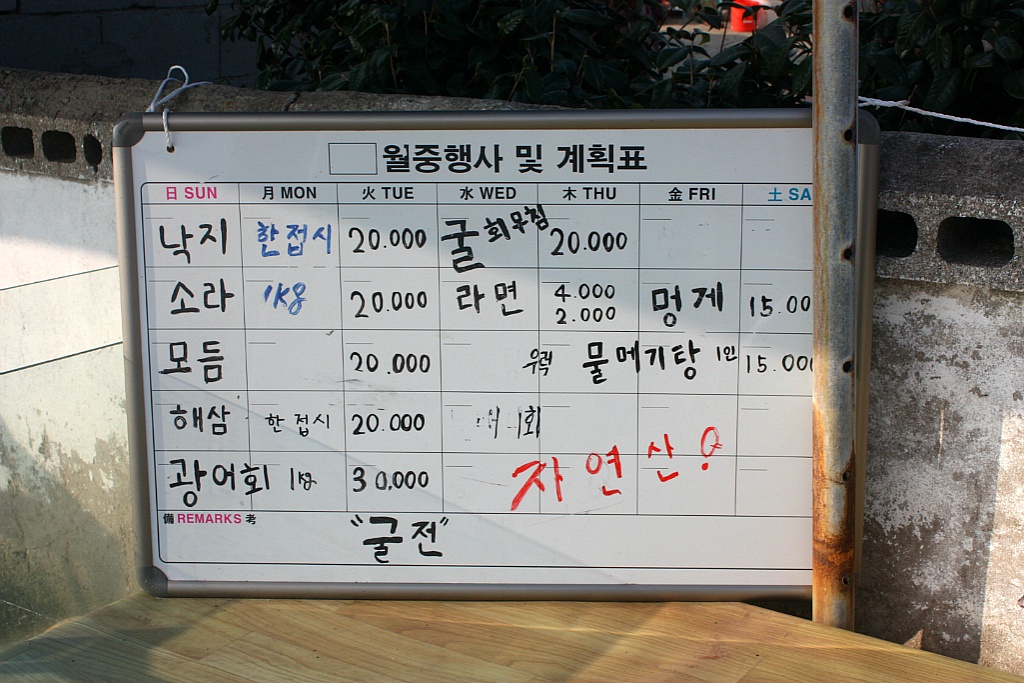 월중행사 및 계획표
日 SUN 月 MON 火 TUE 水 WED 木 THU 金 FRI 土 SA
낙지 한접시 20.000 굴회무침 20.000
소라 1kg 20.000 라면 4.000 2.000 멍게 15.00
모듬 20.000 우럭 물메기탕 1인 15.000
해삼 한접시 20.000 회
광어회 1kg 30.000 자연산!
備 REMARKS 考
"굴전"